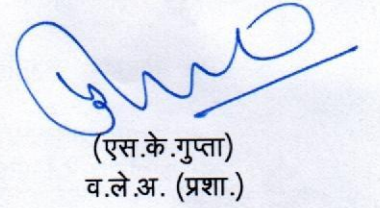 (एस.के.गुप्ता)
व.ले.अ. (प्रशा.)